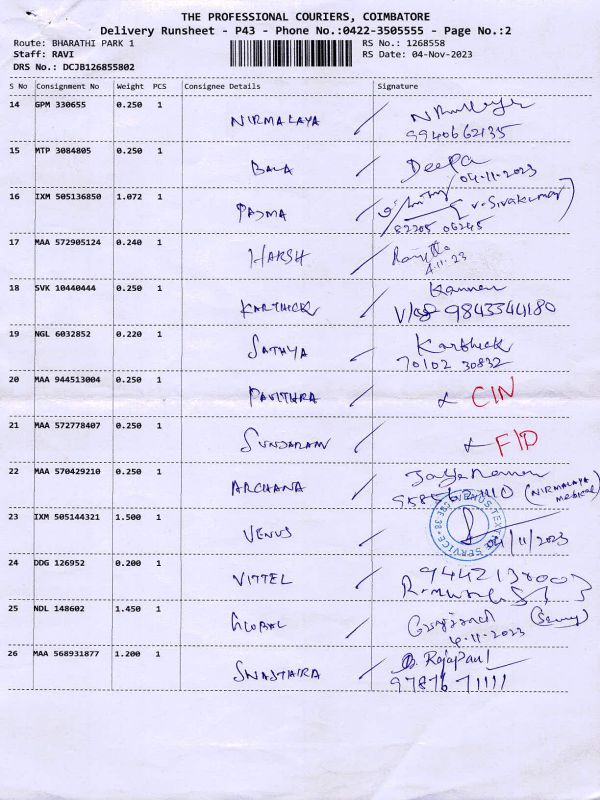 THE PROFESSIONAL COURIERS, COIMBATORE
Delivery Runsheet - P43 - Phone No.:0422-3505555 - Page No.:2
Route: BHARATHI PARK 1 RS No.: 1268558
Staff: RAVI RS Date: 04-Nov-2023
DRS No.: DCJB126855802
S No Consignment No Weight PCS Consignee Details Signature
14 GPM 330655 0.250 1 NIRMALAYA
9940662135
15 MTP 3084805 0.250 1 BALA Deepa
04-11-2023
16 IXM 505136850 1.072 1 PADMA v. Sivakumar
82205 06245
17 MAA 572905124 0.240 1 HARSH
4.11.23
18 SVK 10440444 0.250 1 KARTHICK Kannan
9843544180
19 NGL 6032852 0.220 1 SATHYA Karthick
70102 30832
20 MAA 944513004 0.250 1 PAVITHRA CIN
21 MAA 572778407 0.250 1 SUNDARAM F/D
22 MAA 570429210 0.250 1 ARCHANA
(NIRMALAYA
medical)
23 IXM 505144321 1.500 1 VENUS 04/11/2023
24 DDG 126952 0.200 1 VITTEL
25 NDL 148602 1.450 1 GLOBAL
4-11-2023
26 MAA 568931877 1.200 1 SWASTHIRA Rajapaul
97876 71111